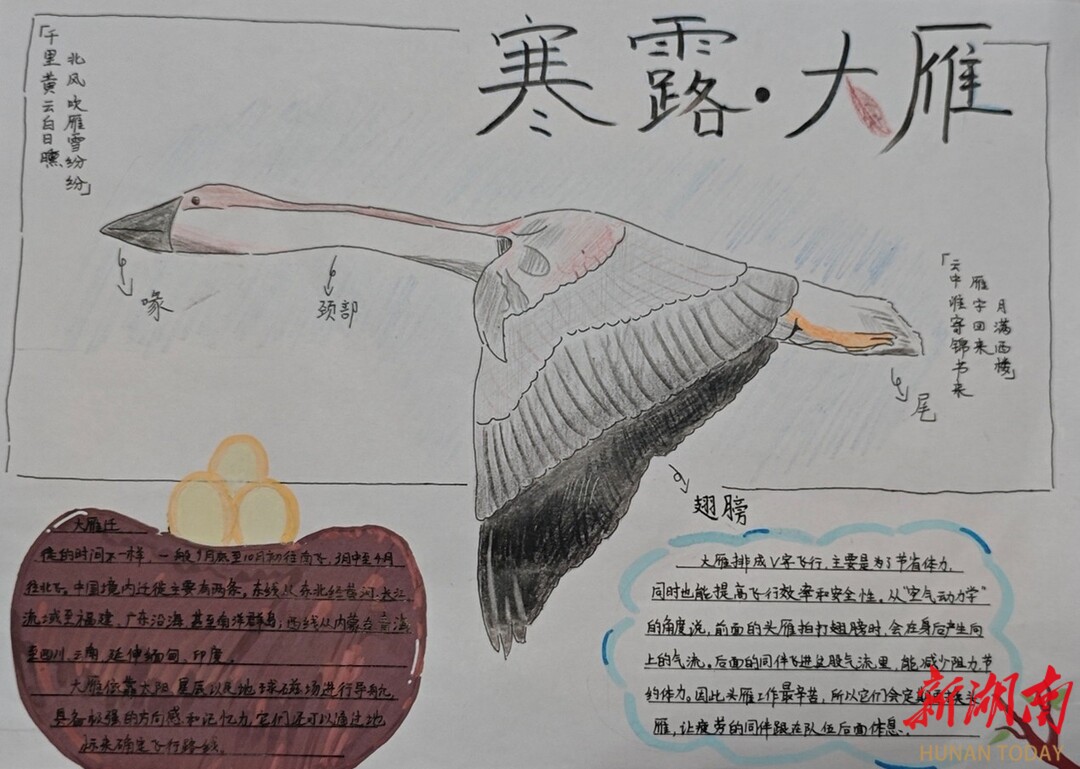 寒露·大雁
「千里黄云白日曛
北风吹雁雪纷纷」
喙
颈部
「云中谁寄锦书来
雁字回来
月满西楼」
尾
翅膀
大雁迁
徙的时间不一样，一般9月底至10月初往南飞，3月中至4月
往北飞。中国境内迁徙主要有两条，东线从东北经黄河、长江
流域至福建、广东沿海，甚至南洋群岛；西线从内蒙古、青海
至四川、云南，延伸缅甸、印度。
大雁依靠太阳、星辰以及地球磁场进行导航，
具备极强的方向感和记忆力，它们还可以通过地
标来确定飞行路线。
大雁排成V字飞行，主要是为了节省体力，
同时也能提高飞行效率和安全性。从"空气动力学"
的角度说，前面的头雁拍打翅膀时，会在身后产生向
上的气流。后面的同伴飞进这股气流里，能减少阻力，节
约体力。因此头雁工作最辛苦，所以它们会定期头
雁，让疲劳的同伴跟在队伍后面休息。
新湖南
HUNAN TODAY